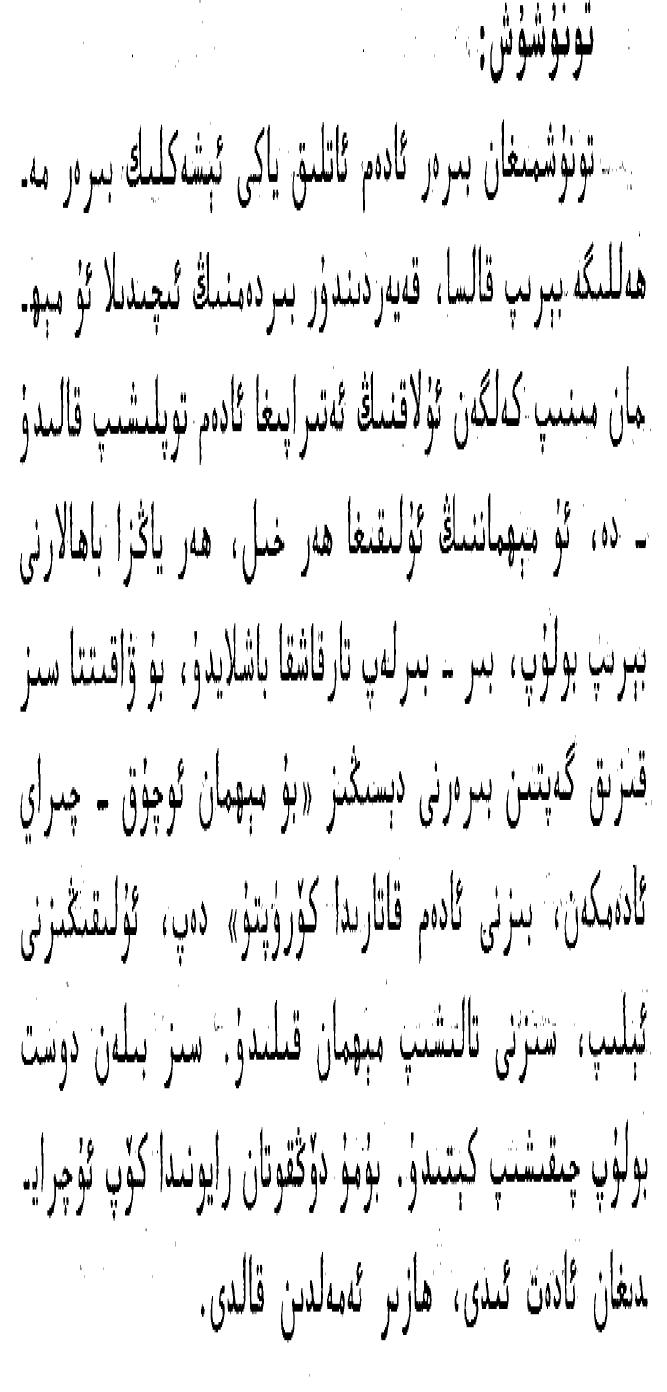 تونۇشۇش:
تونۇشمىغان بىرەر ئادەم ئاتلىق ياكى ئېشەكلىك بىرەر مە-
ھەللىگە بېرىپ قالسا، قەيەردىندۇر بىردەمنىڭ ئىچىدىلا ئۇ مېھ-
مان مىنىپ كەلگەن ئۇلاقنىڭ ئەتىراپىغا ئادەم توپلىشىپ قالىدۇ
- دە، ئۇ مېھماننىڭ ئۇلىقىغا ھەر خىل، ھەر ياڭزا باھالارنى
بېرىپ بولۇپ، بىر - بىرلەپ تارقاشقا باشلايدۇ، بۇ ۋاقىتتا سىز
قىزىق گەپتىن بىرەرنى دېسىڭىز «بۇ مېھمان ئوچۇق - چىراي
ئادەمكەن، بىزنى ئادەم قاتارىدا كۆرۈپتۇ» دەپ، ئۇلىقىڭىزنى
ئېلىپ، سىزنى تالىشىپ مېھمان قىلىدۇ. سىز بىلەن دوست
بولۇپ چىقىشىپ كېتىدۇ. بۇمۇ دۆڭقوتان رايونىدا كۆپ ئۇچراي-
دىغان ئادەت ئىدى، ھازىر ئەمەلدىن قالدى.